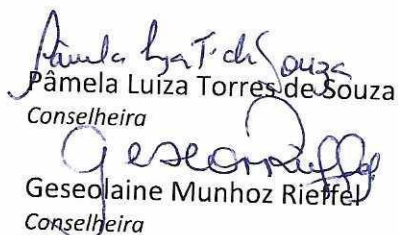 Pâmela Luiza T. de Souza
Pâmela Luiza Torres de Souza
Conselheira
Geseo Rieffel
Geseolaine Munhoz Rieffel
Conselheira